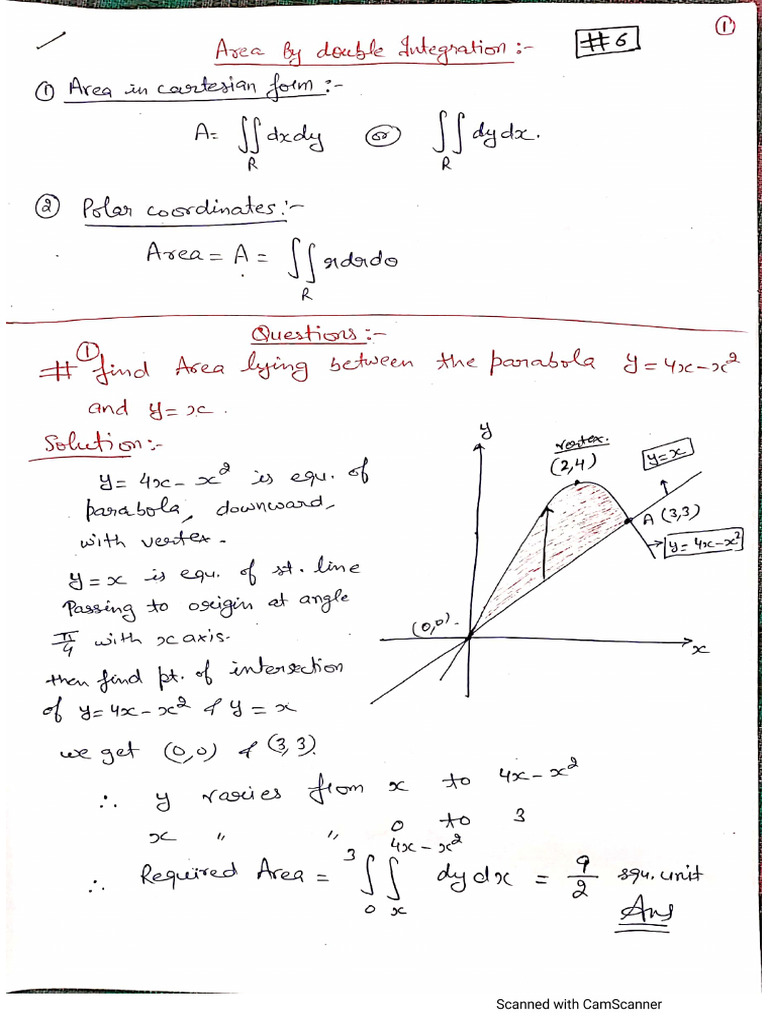 ①
Area By double Integration:- #6
① Area in cartesian form:-
A= ∬ dxdy or ∬ dydx.
R R
② Polar coordinates:-
Area = A = ∬ rdrdθ
R
Questions:-
# ① find Area lying between the parabola y = 4x-x²
and y = x.
Solution:-
y = 4x - x² is equ. of
parabola, downward,
with vertex.
y = x is equ. of st. line
Passing to origin at angle
π/4 with x axis.
then find pt. of intersection
of y = 4x - x² & y = x
we get (0,0) & (3,3).
y
vertex.
(2,4)
y=x
A (3,3)
y = 4x-x²
(0,0)
x
∴ y varies from x to 4x-x²
x " " 0 to 3
∴ Required Area = ∫₀³ ∫ₓ^(4x-x²) dydx = 9/2 squ. unit
Ans
Scanned with CamScanner